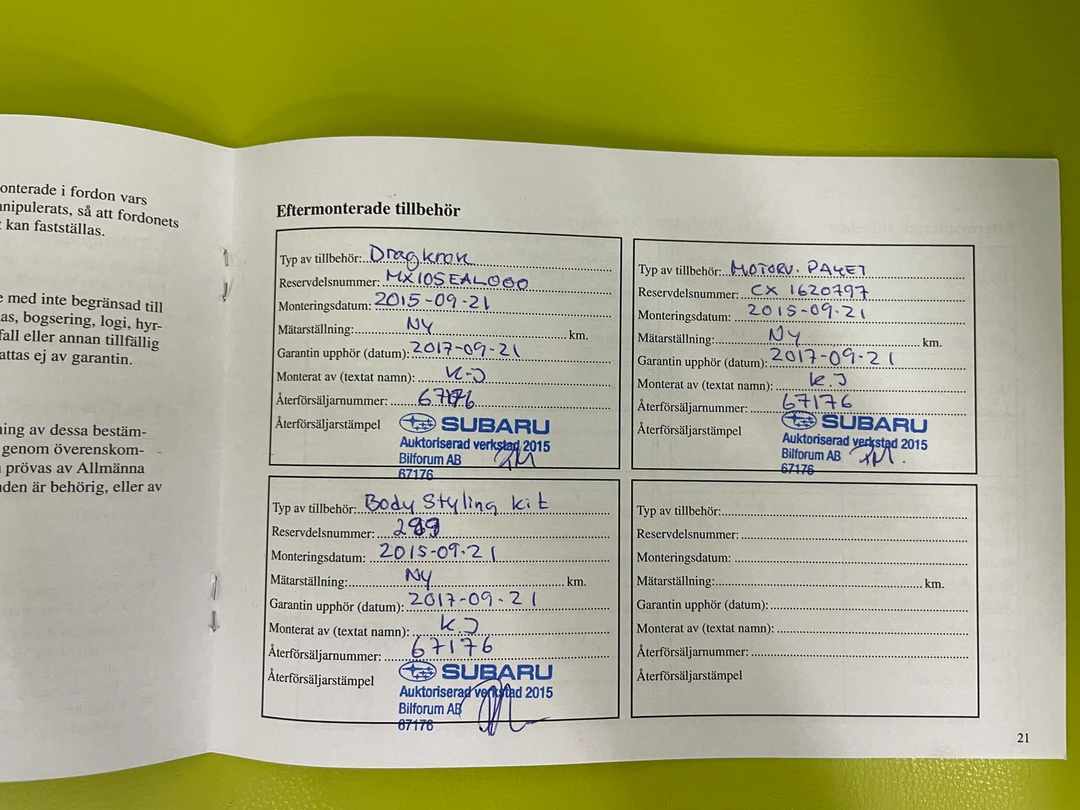 onterade i fordon vars
anipulerats, så att fordonets
t kan fastställas.
e med inte begränsad till
as, bogsering, logi, hyr-
fall eller annan tillfällig
attas ej av garantin.
ning av dessa bestäm-
genom överenskom-
prövas av Allmänna
den är behörig, eller av
Eftermonterade tillbehör
Typ av tillbehör: Dragkrok
Reservdelsnummer: MX10SEAL000
Monteringsdatum: 2015-09-21
Mätarställning: NY km.
Garantin upphör (datum): 2017-09-21
Monterat av (textat namn): K-J
Återförsäljarnummer: 67176
Återförsäljarstämpel
SUBARU
Auktoriserad verkstad 2015
Bilforum AB
67176
Typ av tillbehör: MOTORV. PAKET
Reservdelsnummer: CX 1620797
Monteringsdatum: 2015-09-21
Mätarställning: NY km.
Garantin upphör (datum): 2017-09-21
Monterat av (textat namn): K J
Återförsäljarnummer: 67176
Återförsäljarstämpel
SUBARU
Auktoriserad verkstad 2015
Bilforum AB
67176
Typ av tillbehör: Body Styling kit
Reservdelsnummer:
Monteringsdatum: 2015-09-21
Mätarställning: NY km.
Garantin upphör (datum): 2017-09-21
Monterat av (textat namn): K J
Återförsäljarnummer: 67176
Återförsäljarstämpel
SUBARU
Auktoriserad verkstad 2015
Bilforum AB
67176
Typ av tillbehör:
Reservdelsnummer:
Monteringsdatum:
Mätarställning: km.
Garantin upphör (datum):
Monterat av (textat namn):
Återförsäljarnummer:
Återförsäljarstämpel
21